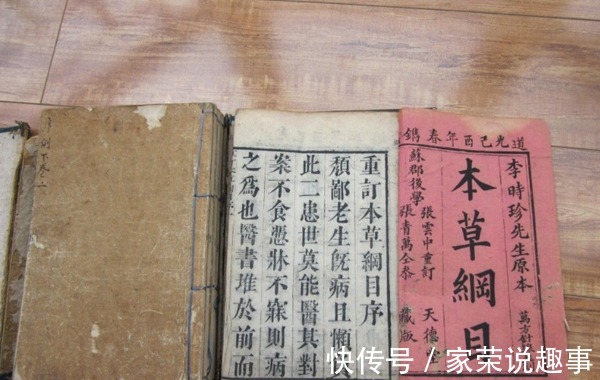 道光己酉年春鐫
李時珍先生原本
萬方針
本草綱目
蘇郡後學
張雲中重訂
張青萬全叅
天德
藏版
重訂本草綱目序
頹鄙老生旣病且懶
此二患世莫能醫其對
案不食憑牀不寐則病
之爲也醫書堆於前而
快传号 / 家荣说趣事